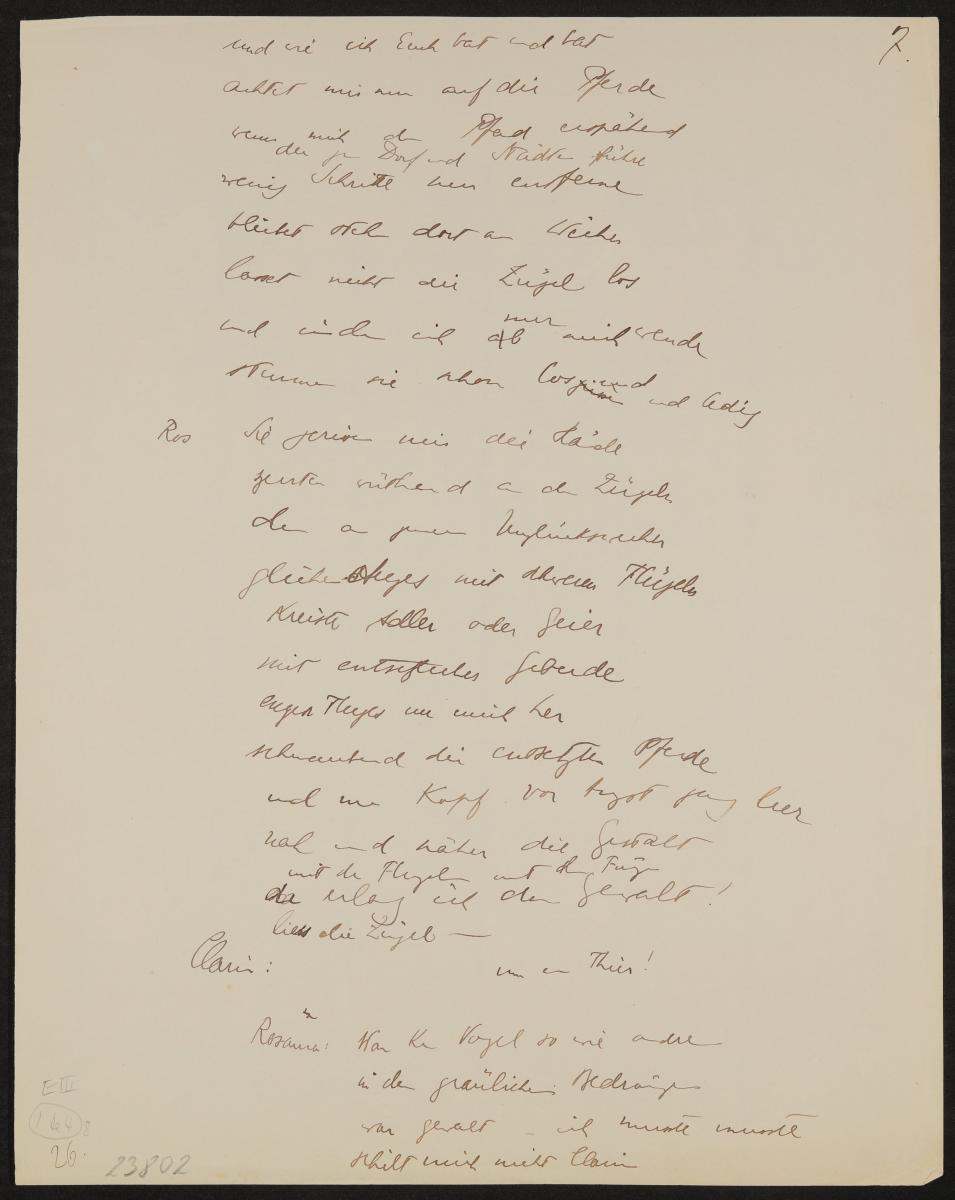 7.
und wie ich Euch bat und bat
achtet mir nun auf die Pferde
wenn mich den Pfad erspähend
der zu Dorf und Städten führe
wenig Schritte nun entferne
bleibet stehn dort am Weiher
lasset nicht die Zügel los
nur
und indem ich ab mich wende
sie schon los und und ledig
Ros Sie mir die Hände
zerrten wüthend an den Zügeln
denn an jenem Unglücksweiher
gleichen Fluges mit schweren Flügeln
Kreiste Adler oder Geier
mit entsetzlicher Geberde
engen Fluges um mich her
schnaubend die entsetzten Pferde
und um Kopf vor Angst ganz leer
nah und näher die Gestalt
mit den Flügeln mit den
da erlag ich der Gewalt!
liess die Zügel —
Clarin: um ein Thier!
Rosaura: War kein Vogel so wie andre
in der gräulichen Bedrängnis
war gewalt – ich musste musste
schilt mich nicht Clarin
E III
1 64 8
26.
23802